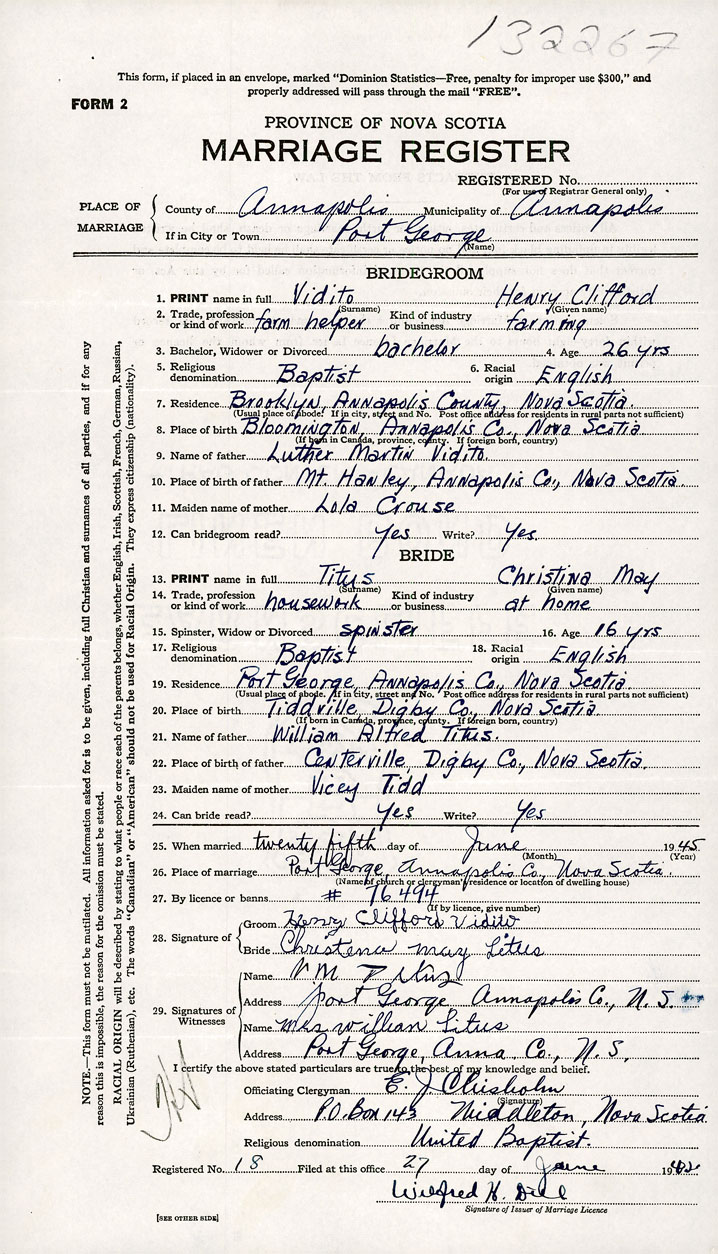 132267
This form, if placed in an envelope, marked "Dominion Statistics—Free, penalty for improper use $300," and
properly addressed will pass through the mail "FREE".
FORM 2
PROVINCE OF NOVA SCOTIA
MARRIAGE REGISTER
REGISTERED No.
(For use of Registrar General only)
PLACE OF MARRIAGE
County of Annapolis Municipality of Annapolis
If in City or Town Port George
(Name)
BRIDEGROOM
1. PRINT name in full Vidito Henry Clifford
(Surname) (Given name)
2. Trade, profession or kind of work farm helper Kind of industry or business farming
3. Bachelor, Widower or Divorced bachelor 4. Age 26 yrs
5. Religious denomination Baptist 6. Racial origin English
7. Residence Brooklyn, Annapolis County, Nova Scotia.
(Usual place of abode. If in city, street and No. Post office address for residents in rural parts not sufficient)
8. Place of birth Bloomington, Annapolis Co., Nova Scotia
(If born in Canada, province, county. If foreign born, country)
9. Name of father Luther Martin Vidito.
10. Place of birth of father Mt. Hanley, Annapolis Co., Nova Scotia.
11. Maiden name of mother Lola Crouse
12. Can bridegroom read? Yes Write? Yes.
BRIDE
13. PRINT name in full Titus Christina May
(Surname) (Given name)
14. Trade, profession or kind of work housework Kind of industry or business at home
15. Spinster, Widow or Divorced spinster 16. Age 16 yrs
17. Religious denomination Baptist 18. Racial origin English
19. Residence Port George, Annapolis Co., Nova Scotia.
(Usual place of abode. If in city, street and No. Post office address for residents in rural parts not sufficient)
20. Place of birth Tiddville, Digby Co., Nova Scotia.
(If born in Canada, province, county. If foreign born, country)
21. Name of father William Alfred Titus.
22. Place of birth of father Centerville, Digby Co., Nova Scotia.
23. Maiden name of mother Vicey Tidd
24. Can bride read? Yes Write? Yes
25. When married twenty fifth day of June 1945
(Month) (Year)
26. Place of marriage Port George, Annapolis Co., Nova Scotia.
(Name of church or clergyman's residence or location of dwelling house)
27. By licence or banns # 76494
(If by licence, give number)
28. Signature of
Groom Henry Clifford Vidito
Bride Christena may Titus
29. Signatures of Witnesses
Name
Address Port George Annapolis Co., N.S.
Name Mrs William Titus
Address Port George, Anna. Co., N.S.
I certify the above stated particulars are true to the best of my knowledge and belief.
Officiating Clergyman E. J. Chisholm
(Signature)
Address P.O. Box 143 Middleton, Nova Scotia
Religious denomination United Baptist.
Registered No. 18 Filed at this office 27 day of June 19
Wilfred H.
Signature of Issuer of Marriage Licence
[SEE OTHER SIDE]
NOTE.—This form must not be mutilated. All information asked for is to be given, including full Christian and surnames of all parties, and if for any
reason this is impossible, the reason for the omission must be stated.
RACIAL ORIGIN will be described by stating to what people or race each of the parents belongs, whether English, Irish, Scottish, French, German, Russian,
Ukrainian (Ruthenian), etc. The words "Canadian" or "American" should not be used for Racial Origin. They express citizenship (nationality).